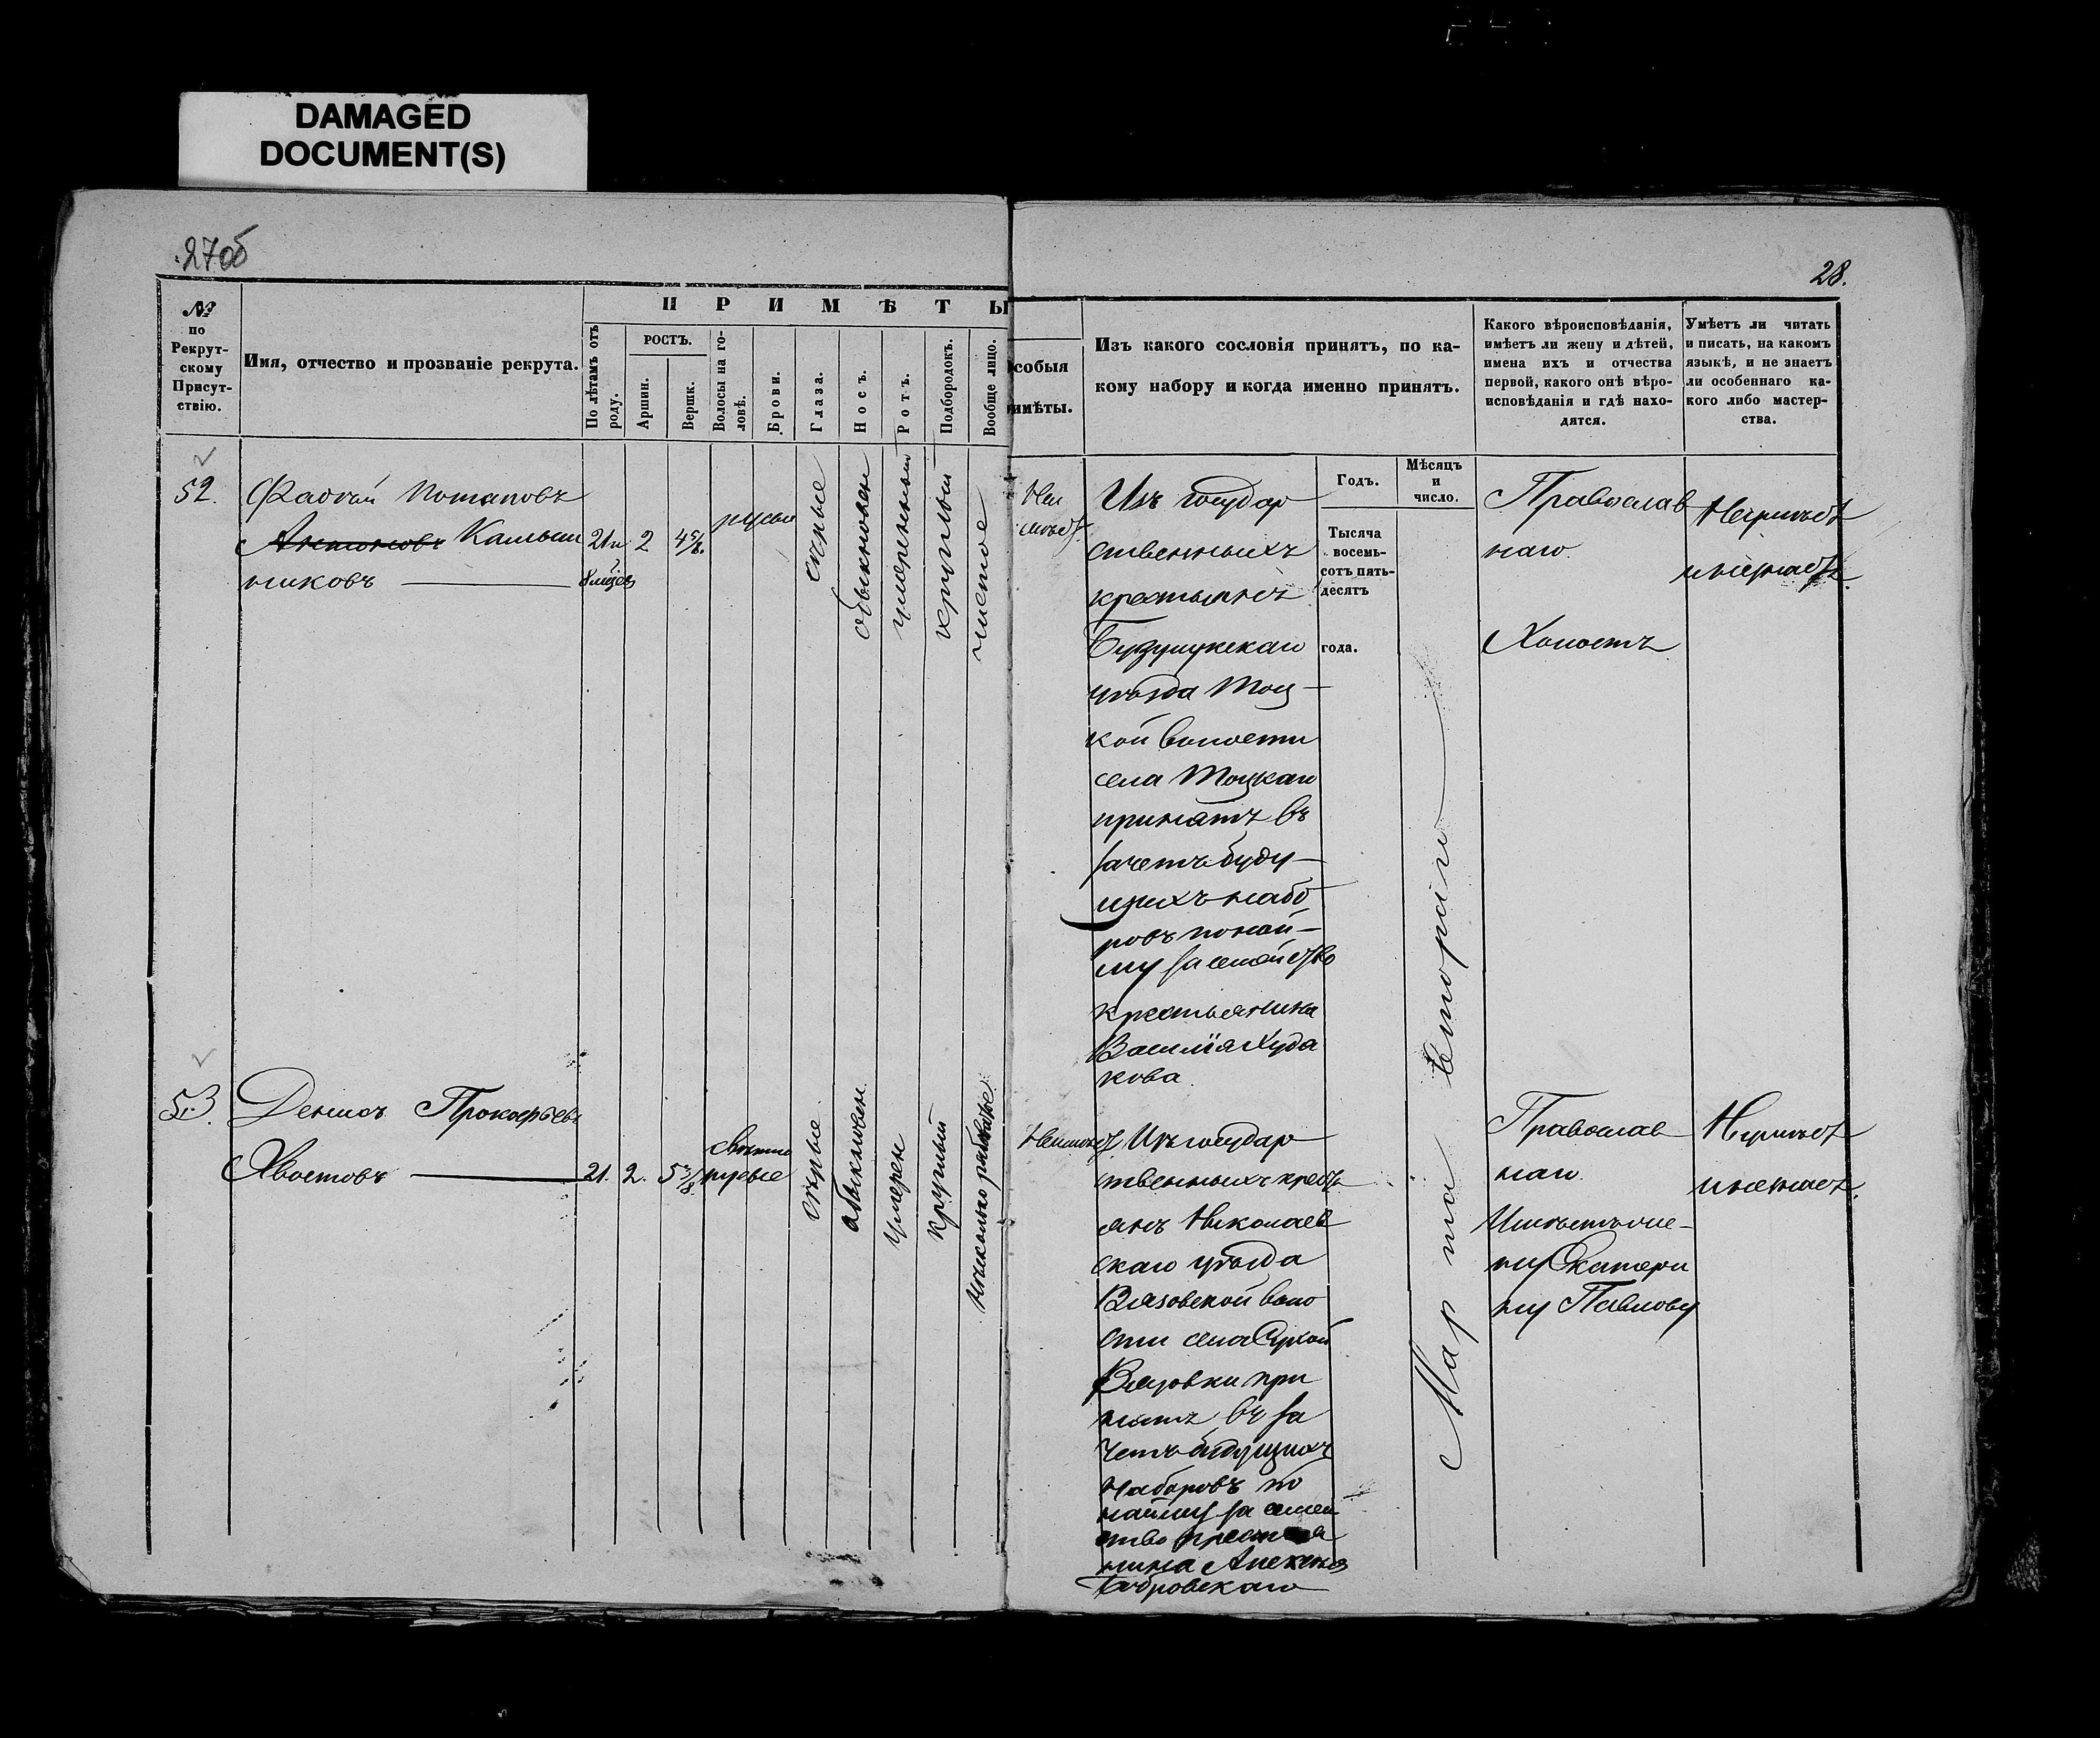 DAMAGED
DOCUMENT(S)
27об
28.
№
по
Рекрут-
скому
Присут-
ствію.
Имя, отчество и прозваніе рекрута.
ПРИМѢТЫ
По лѣтамъ отъ
роду.
РОСТЪ.
Аршин.
Вершк.
Волосы на го-
ловѣ.
Брови.
Глаза.
Носъ.
Ротъ.
Подбородокъ.
Вообще лицо.
собыя
имѣты.
Изъ какого сословія принятъ, по ка-
кому набору и когда именно принятъ.
Какого вѣроисповѣданія,
имѣетъ ли жену и дѣтей,
имена ихъ и отчества
первой, какого онѣ вѣро-
исповѣданія и гдѣ нахо-
дятся.
Умѣетъ ли читать
и писать, на какомъ
языкѣ, и не знаетъ
ли особеннаго ка-
кого либо мастер-
ства.
Годъ.
Мѣсяцъ
и
число.
Тысяча
восемь-
сотъ пять-
десятъ
года.
52.
Потаповъ
Антоновъ Камыш
никовъ
21 и
2
4 5/8.
русые
сѣрые
обыкновен
умеренный
круглый
чистое
Неи
мѣетъ
Изъ государ
ственныхъ
крестьянъ
Бузулукскаго
уѣзда Тоц-
кой волости
села Тоцкаго
принятъ въ
зачетъ буду-
щихъ набо
ровъ понай-
му за семейство
крестьянина
Василія Худа
кова.
Марта второго
Православ
наго.
Холостъ
Неумѣетъ
инезнаетъ.
53.
Денисъ Прокофьевъ
Хвостовъ
21.
2.
5 3/8
свѣтло
русые
сѣрые
обыкновен.
умерен
круглый
нѣсколько рябоватое
Неимѣетъ
Изъ государ
ственныхъ кресть
янъ Николаев
скаго уѣзда
Вязовской воло
сти села Сухой
Вязовки при
нятъ въ за
четъ будущихъ
наборовъ по
найму за семей
ство крестья
нина Алексея
Бобровскаго
Православ
наго.
Имѣетъ же-
ну Екатери
ну Павлову
Неумѣетъ
инезнаетъ.